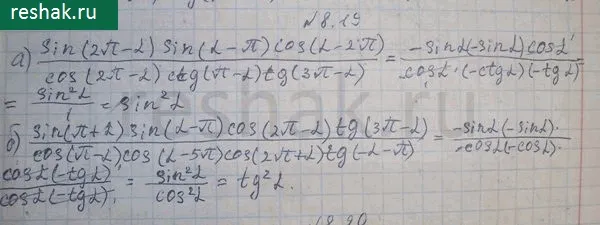 reshak.ru
№8.19
а) sin(2π-α) sin(α-π) cos(α-2π) / cos(2π-α) ctg(π-α) tg(3π-α) = -sinα(-sinα) cosα / cosα·(-ctgα)(-tgα) =
= sin²α / 1 = sin²α
б) sin(π+α) sin(α-π) cos(2π-α) tg(3π-α) / cos(π-α) cos(α-5π) cos(2π+α) tg(-α-π) = -sinα(-sinα)· / -cosα(-cosα)·
cosα(-tgα) / cosα(-tgα) = sin²α / cos²α = tg²α.